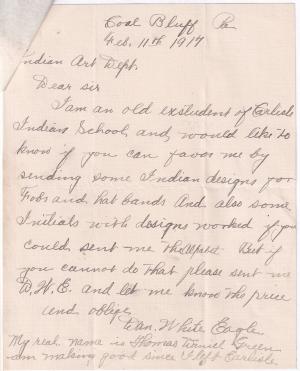 Coal Bluff Pa
Feb. 11th 1917
Indian Art Dept.
Dear sir
I am an old exstudent of Carlisle
Indians School and would like to
know if you can favor me by
sending some Indian designs for
Fobs and hat bands And also some
Initials with designs worked if you
could sent me the But if
you cannot do that please sent me
D.W.E. and let me know the price
and oblige
Dan. White Eagle
My real name is Thomas Green
am making good since I left Carlisle